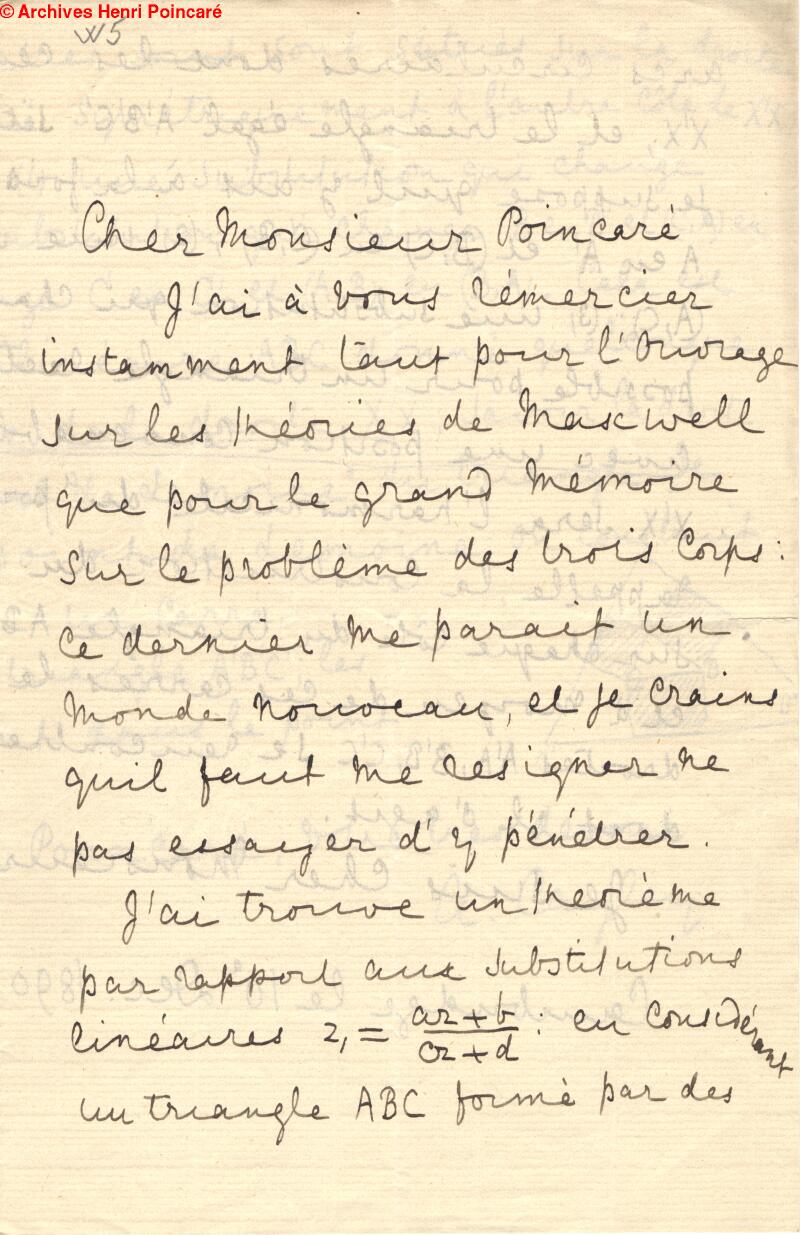 © Archives Henri Poincaré
W5
Cher Monsieur Poincaré
J'ai à vous rémercier
instamment taut pour l'Ouvrage
sur les théories de Maxwell
que pour le grand Mémoire
sur le problème des trois Corps:
ce dernier me parait un
monde nouveau, et je crains
qu'il faut me resigner ne
pas essayer d'y pénétrer.
J'ai trouve un theorème
par rapport aux substitutions
linéaires z, = az + b / cz + d : en considérant
un triangle ABC formè par des